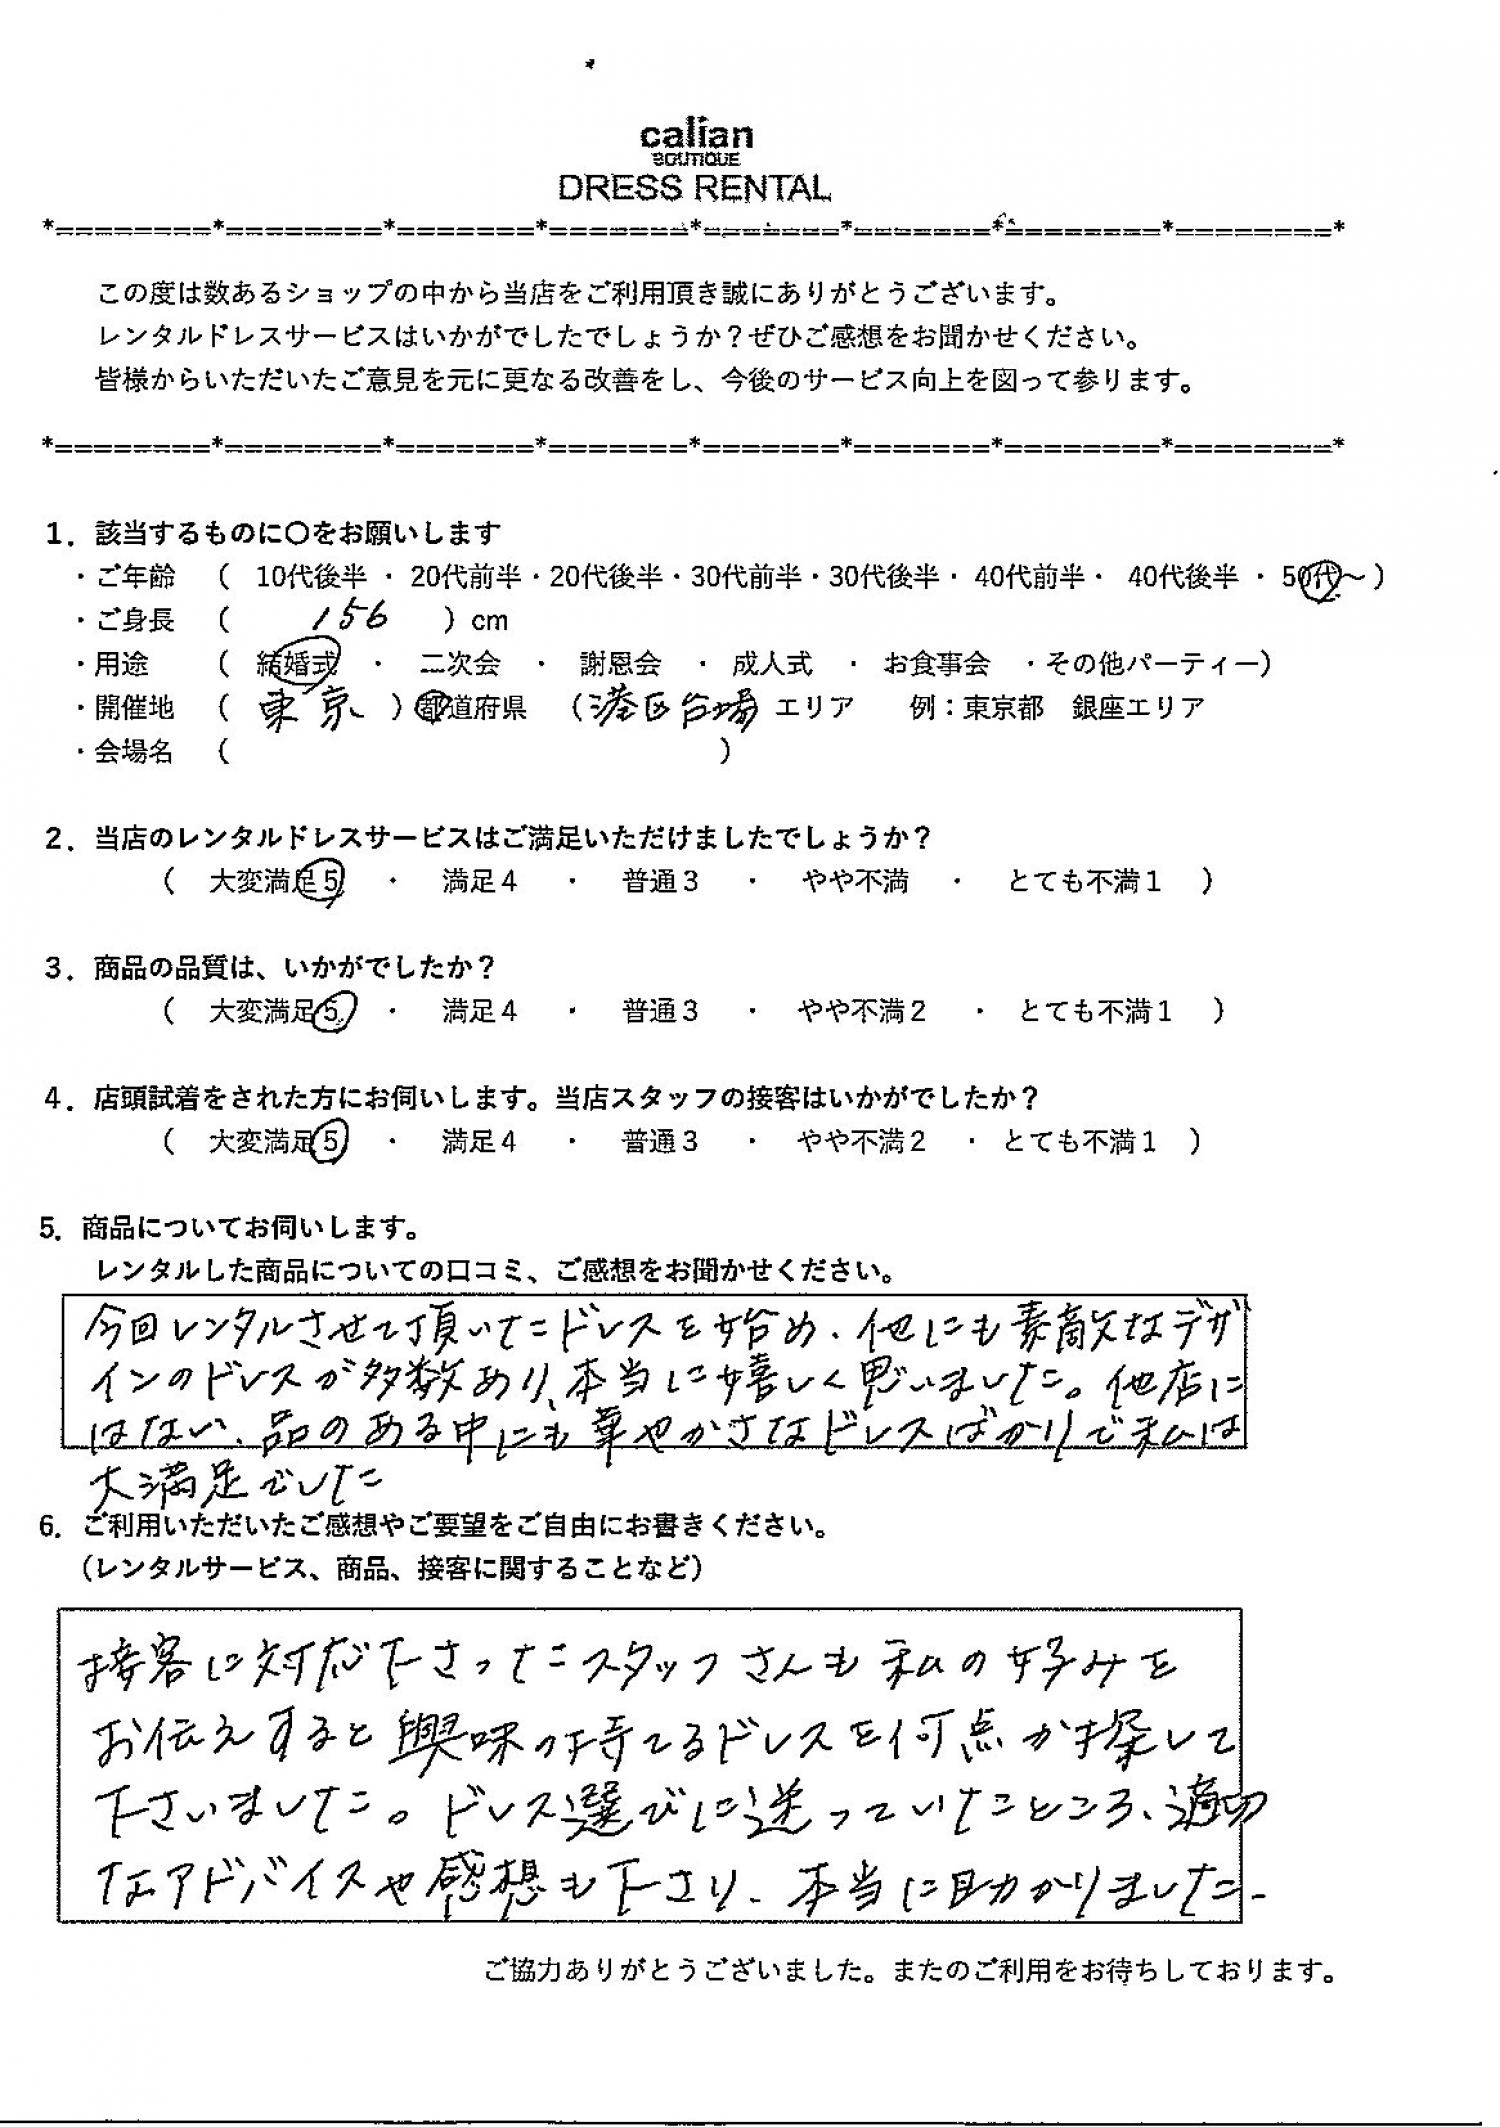 calian
BOUTIQUE
DRESS RENTAL
*========*========*=======*=======*=======*=======*========*========*
この度は数あるショップの中から当店をご利用頂き誠にありがとうございます。
レンタルドレスサービスはいかがでしたでしょうか？ぜひご感想をお聞かせください。
皆様からいただいたご意見を元に更なる改善をし、今後のサービス向上を図って参ります。
*========*========*=======*=======*=======*=======*========*========*
1．該当するものに〇をお願いします
・ご年齢 （ 10代後半 ・ 20代前半・20代後半・30代前半・30代後半・ 40代前半・ 40代後半 ・ 50代～）
・ご身長 （ 156 ）cm
・用途 （ 結婚式 ・ 二次会 ・ 謝恩会 ・ 成人式 ・ お食事会 ・その他パーティー）
・開催地 （ 東京 ）都道府県 （港区台場 エリア 例：東京都 銀座エリア
・会場名 （ ）
2．当店のレンタルドレスサービスはご満足いただけましたでしょうか？
（ 大変満足5 ・ 満足4 ・ 普通3 ・ やや不満 ・ とても不満1 ）
3．商品の品質は、いかがでしたか？
（ 大変満足5 ・ 満足4 ・ 普通3 ・ やや不満2 ・ とても不満1 ）
4．店頭試着をされた方にお伺いします。当店スタッフの接客はいかがでしたか？
（ 大変満足5 ・ 満足4 ・ 普通3 ・ やや不満2 ・ とても不満1 ）
5．商品についてお伺いします。
レンタルした商品についての口コミ、ご感想をお聞かせください。
今回レンタルさせて頂いたドレスを始め、他にも素敵なデザ
インのドレスが多数あり、本当に嬉しく思いました。他店に
はない、品のある中にも華やかさなドレスばかりで私は
大満足でした
6．ご利用いただいたご感想やご要望をご自由にお書きください。
（レンタルサービス、商品、接客に関することなど）
接客に対応下さったスタッフさんも私の好みを
お伝えすると興味の持てるドレスを何点か探して
下さいました。ドレス選びに迷っていたところ、適切
なアドバイスや感想も下さり、本当に助かりました。
ご協力ありがとうございました。またのご利用をお待ちしております。